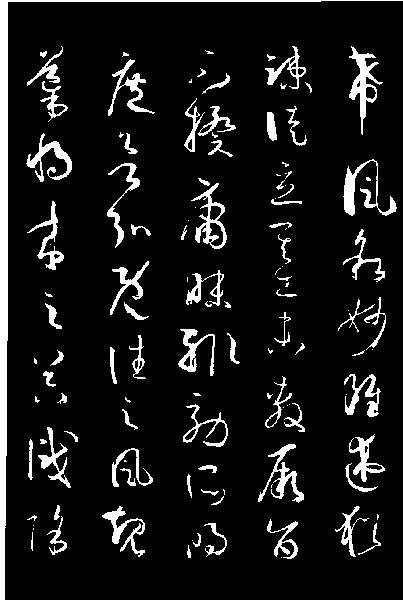 希風敘妙雖述猶
疎徒立其工未敷厥旨
不揆庸昧輒効所明
庶欲弘既往之風規
導將來之器識除